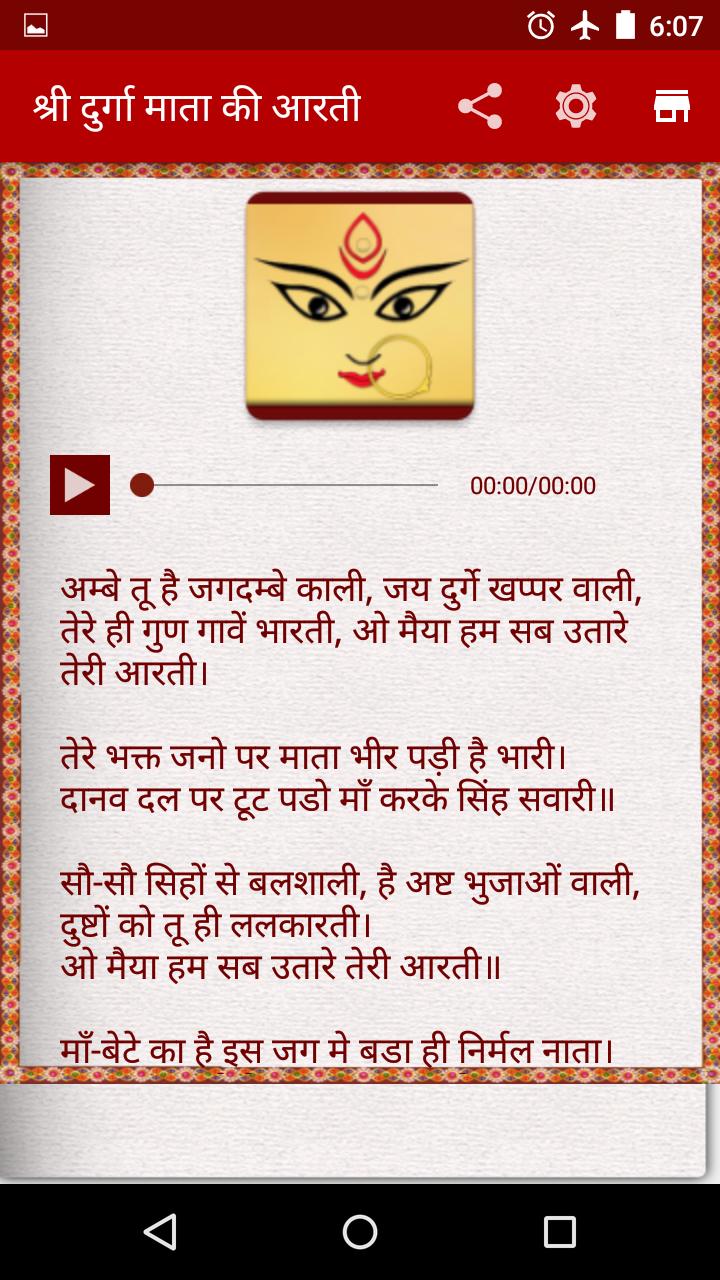 6:07
श्री दुर्गा माता की आरती
00:00/00:00
अम्बे तू है जगदम्बे काली, जय दुर्गे खप्पर वाली,
तेरे ही गुण गावें भारती, ओ मैया हम सब उतारे
तेरी आरती।
तेरे भक्त जनो पर माता भीर पड़ी है भारी।
दानव दल पर टूट पडो माँ करके सिंह सवारी॥
सौ-सौ सिहों से बलशाली, है अष्ट भुजाओं वाली,
दुष्टों को तू ही ललकारती।
ओ मैया हम सब उतारे तेरी आरती॥
माँ-बेटे का है इस जग मे बडा ही निर्मल नाता।